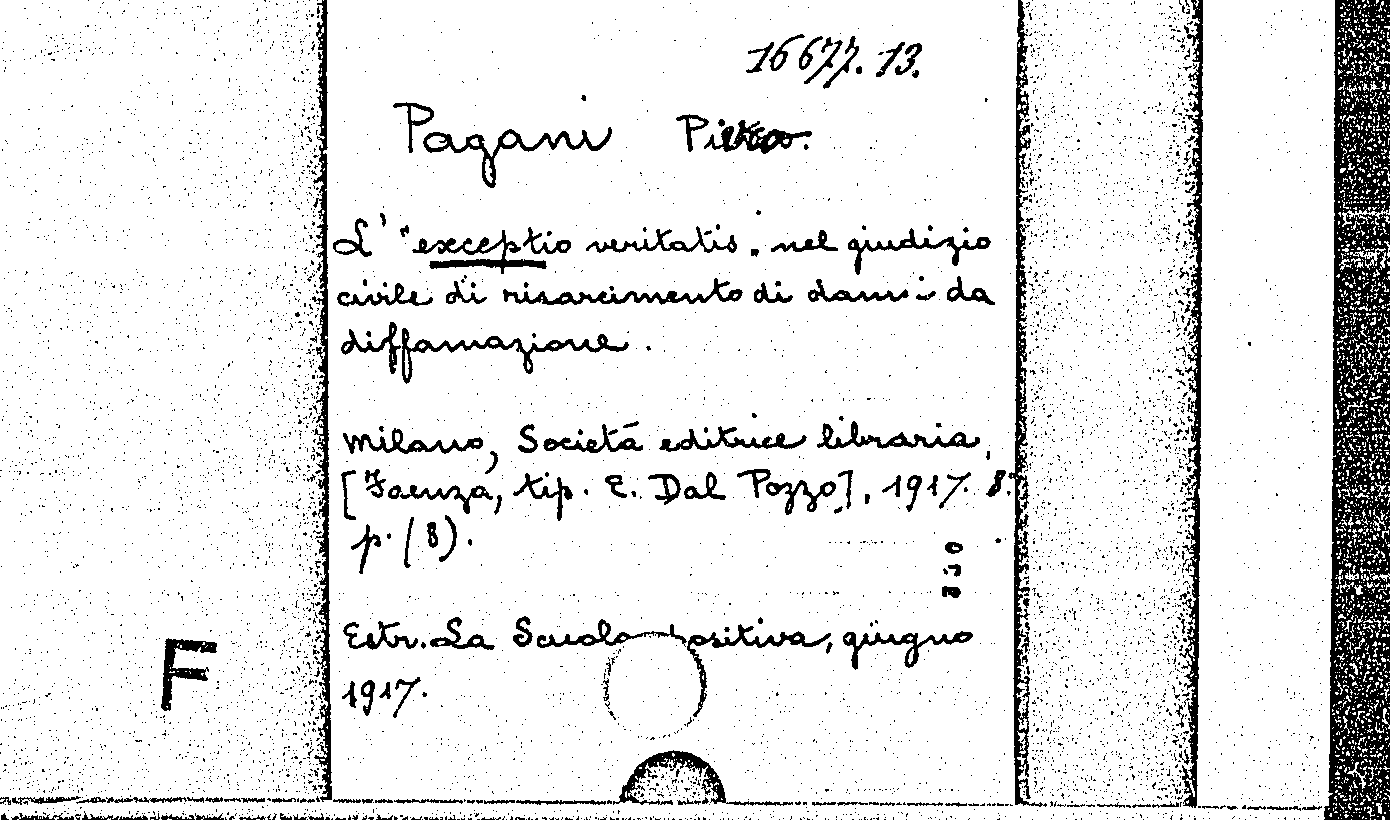 16677.13.
Pagani Pietro.
L' "exceptio veritatis„ nel giudizio
civile di risarcimento di danni da
diffamazione.
Milano, Società editrice libraria,
[Faenza, tip. E. Dal Pozzo], 1917. 8.°
p. (8).
Estr. La Scuola positiva, giugno
1917.
F